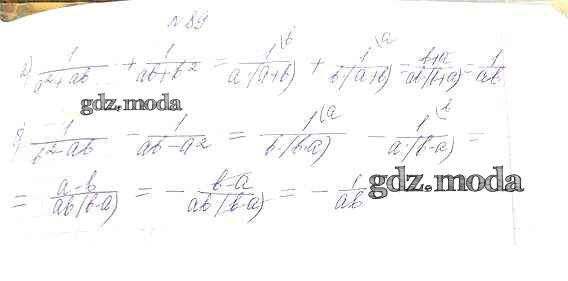 №89
а) 1/(a²+ab) + 1/(ab+b²) = 1\b/(a·(a+b)) + 1\a/(b·(a+b)) = (b+a)/(ab(b+a)) = 1/(ab)
gdz.moda
б) 1/(b²-ab) - 1/(ab-a²) = 1\a/(b·(b-a)) - 1\b/(a·(b-a)) =
= (a-b)/(ab(b-a)) = - (b-a)/(ab(b-a)) = - 1/(ab)
gdz.moda